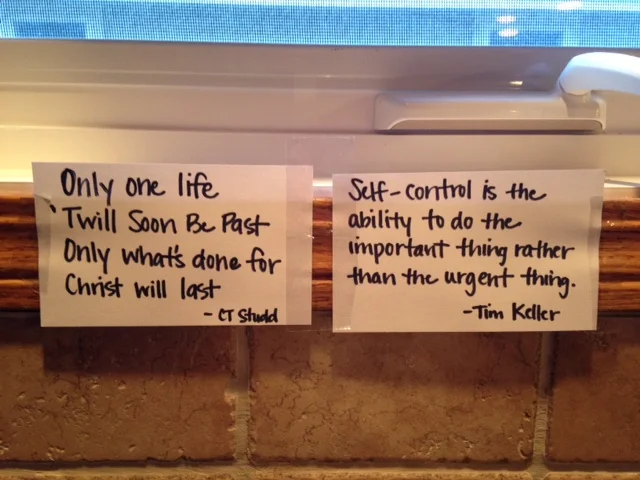 Only one life
'Twill Soon Be Past
Only what's done for
Christ will last
- CT Studd
Self-control is the
ability to do the
important thing rather
than the urgent thing.
-Tim Keller